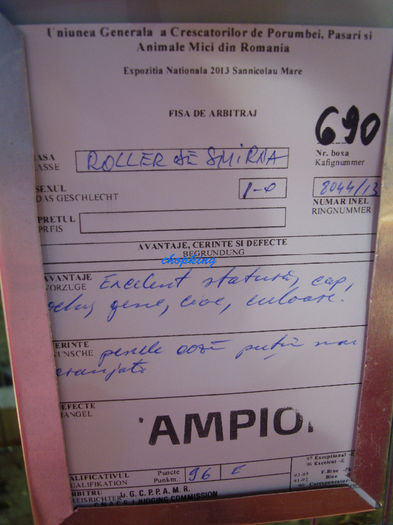 Uniunea Generala a Crescatorilor de Porumbei, Pasari si
Animale Mici din Romania
Expozitia Nationala 2013 Sannicolau Mare
FISA DE ARBITRAJ
690
ASA
ASSE
ROLLER DE SMIRNA
Nr. boxa
Kafignummer
SEXUL
DAS GESCHLECHT
1-0
8044/13
NUMAR INEL
RINGNUMMER
PRETUL
PREIS
AVANTAJE, CERINTE SI DEFECTE
BEGRUNDUNG
chopking
AVANTAJE
VORZUGE
Excelent statură, cap,
ochi, gene, cioc, culoare.
ERINTE
UNSCHE
penele cozii puțin mai
aranjate
EFECTE
ANGEL
AMPIO
ALIFICATIVUL
UALIFIKATION
Puncte
Punkm.
96 E
97 Exceptional
96 Excelent -E
RBITRU
EISRICHTER
U.G.C.P.P.A.M.R.
JUDGING COMMISSION